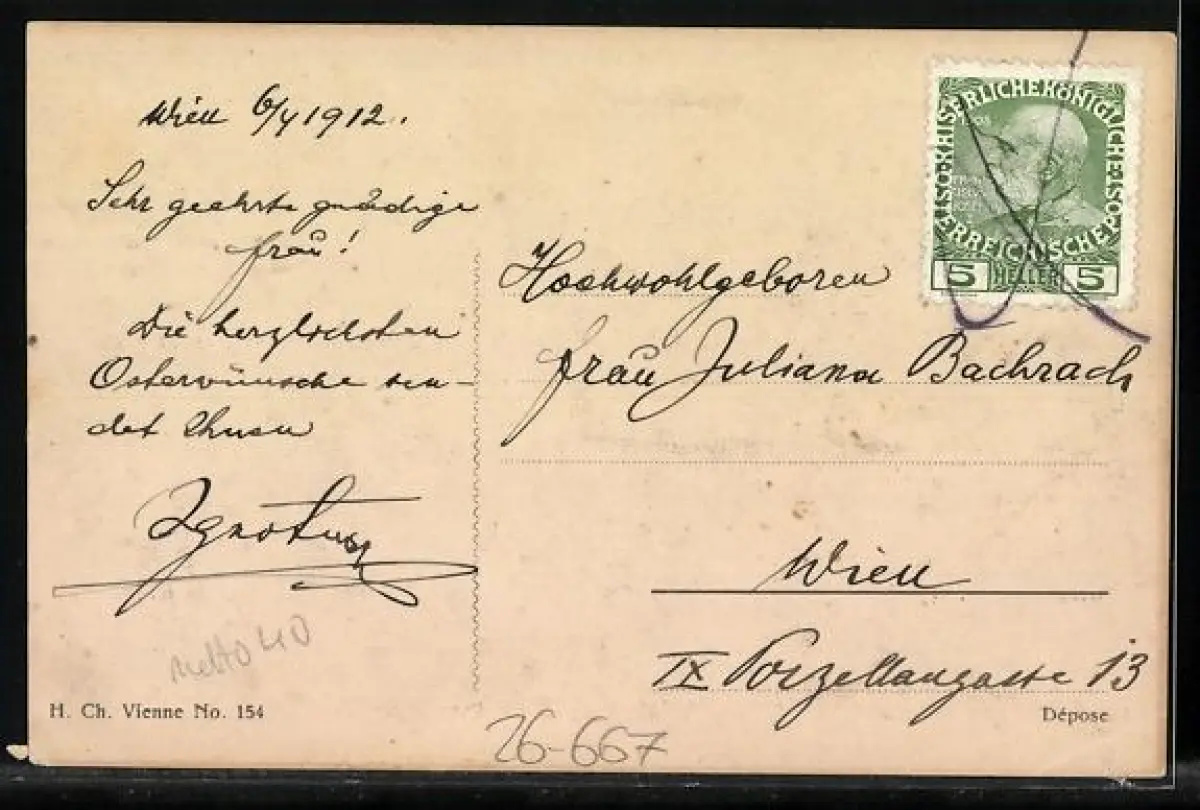 Wien 6/4 1912.
Sehr geehrte gnädige
Frau!
Die herzlichsten
Osterwünsche sen-
det Ihnen
Ignotus
netto 40
H. Ch. Vienne No. 154
KAISERLICHEKÖNIGLICHE
ÖSTERREICHISCHE
5 HELLER 5
Hochwohlgeboren
Frau Juliana Bachrach
Wien
IX Porzellangasse 13
Dépose
26-667